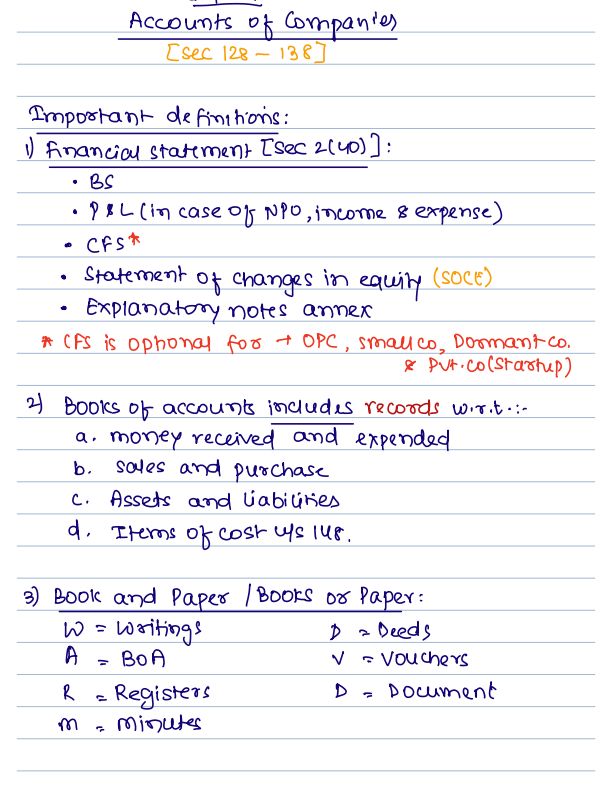 Accounts of Companies
[Sec 128 - 138]
Important definitions:
1) Financial statement [Sec 2(40)]:
• BS
• P&L (in case of NPO, income & expense)
• CFS*
• Statement of changes in equity (SOCE)
• Explanatory notes annex
* CFS is optional for → OPC, small co, Dormant co.
& Pvt. co (Startup)
2) Books of accounts includes records w.r.t.:-
a. money received and expended
b. sales and purchase
c. Assets and liabilities
d. Items of cost u/s 148.
3) Book and Paper / Books or Paper:
W = Writings
D = Deeds
A = BoA
V = Vouchers
R = Registers
D = Document
M = Minutes